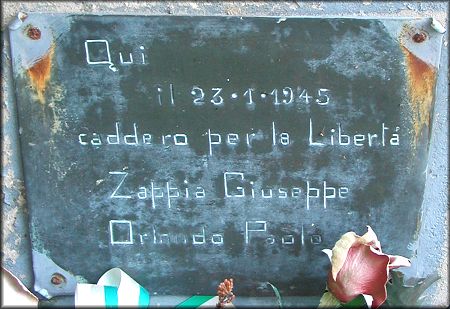 Qui
il 23·1·1945
caddero per la Libertá
Zappia Giuseppe
Orlando Paolo